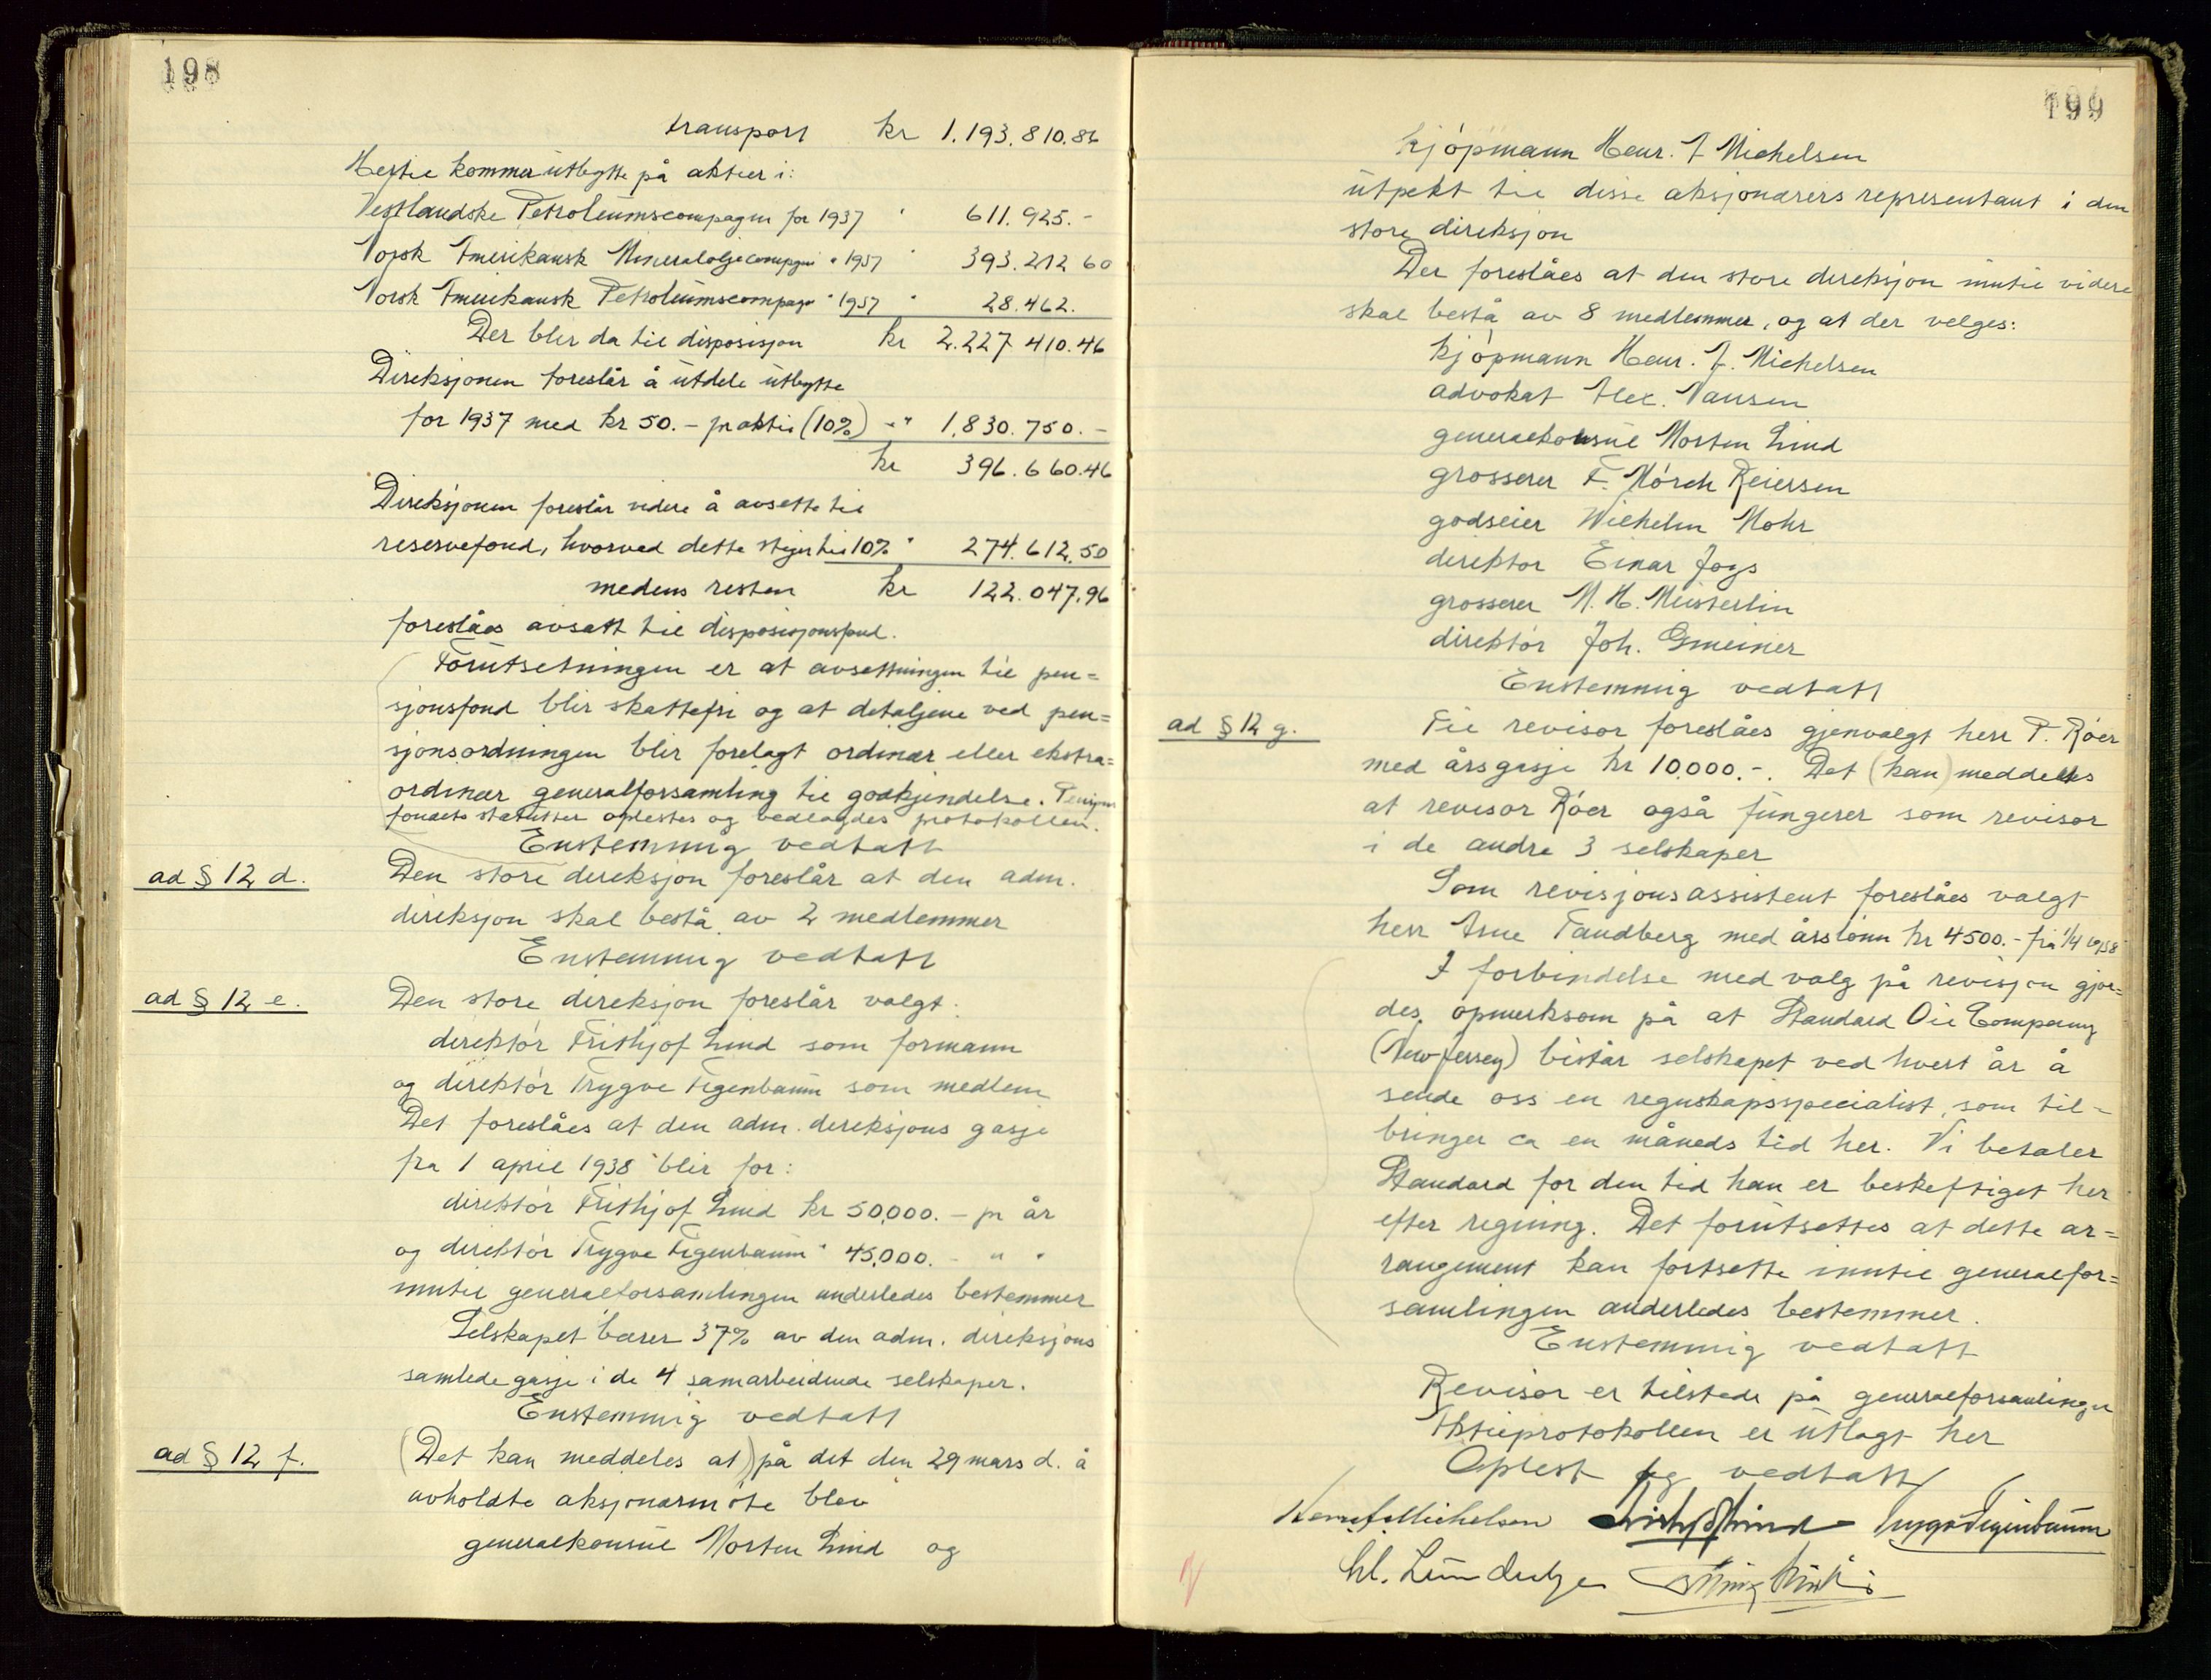 198
transport kr 1.193.810.86
Hertil kommer utbytte på aktier i:
Vestlandske Petroleumscompagni for 1937 " 611.925.-
Norsk Amerikansk Mineraloljecompgni " 1937 " 393.212 60
Norsk Amerikansk Petroleumscompagni " 1937 " 28.462.
Der blir da til disposisjon kr 2.227 410.46
Direksjonen foreslår å utdele utbytte
for 1937 med kr 50.- pr aktie (10%) -" 1.830.750.-
kr 396.660.46
Direksjonen foreslår videre å avsette til
reservefond, hvorved dette stiger til 10% " 274.612.50
medens resten kr 122.047.96
foreslåes avsatt til disposisjonsfond.
Forutsetningen er at avsettningen til pen=
sjonsfond blir skattefri og at detaljene ved pen=
sjonsordningen blir forelagt ordinær eller ekstra=
ordinær generalforsamling til godkjendelse. Pensjons
fondets statutter oplestes og vedlagdes protokollen.
Enstemmig vedtatt
ad § 12 d. Den store direksjon foreslår at den adm.
direksjon skal bestå av 2 medlemmer
Enstemmig vedtatt
ad § 12 e. Den store direksjon foreslår valgt:
direktör Frithjof Lind som formann
og direktör Trygve Figenbaum som medlem
Det foreslåes at den adm. direksjons gasje
fra 1 april 1938 blir for:
direktör Frithjof Lind kr 50,000.- pr år
og direktör Trygve Figenbaum " 45,000.- " "
inntil generalforsamlingen anderledes bestemmer
Selskapet bærer 37% av den adm. direksjons
samlede gasje i de 4 samarbeidende selskaper.
Enstemmig vedtatt
ad § 12 f. (Det kan meddeles at) på det den 29 mars d. å
avholdte aksjonærmöte blev
generalkonsul Morten Lind og
199
kjöpmann Henr. J Michelsen
utpekt til disse aksjonærers representant i den
store direksjon
Der foreslåes at den store direksjon inntil videre
skal bestå av 8 medlemmer, og at der velges:
kjöpmann Henr. J. Michelsen
advokat Alex. Nansen
generalkonsul Morten Lind
grosserer F. Mörch Reiersen
godseier Wilhelm Mohr
direktor Einar Jogs
grosserer M. H. Meisterlin
direktör Joh. Gmeiner
Enstemmig vedtatt
ad § 12 g. Til revisor foreslåes gjenvalgt herr P. Röer
med årsgasje kr 10.000.-. Det (kan) meddeles
at revisor Röer også fungerer som revisor
i de andre 3 selskaper
Som revisjonsassistent foreslåes valgt
herr Arne Tandberg med årslönn kr 4500.- fra 1/4 1938
I forbindelse med valg på revisjon gjor=
des opmerksom på at Standard Oil Company
(New Jersey) bistår selskapet ved hvert år å
sende oss en regnskapsspecialist, som til=
bringer ca en måneds tid her. Vi betaler
Standard for den tid han er beskeftiget her
efter regning. Det forutsettes at dette ar=
rangement kan fortsette inntil generalfor=
samlingen anderledes bestemmer.
Enstemmig vedtatt
Revisor er tilstede på generalforsamlingen
Aktieprotokollen er utlagt her
Oplest og vedtatt
Henr J Michelsen Frithjof Lind Trygve Figenbaum